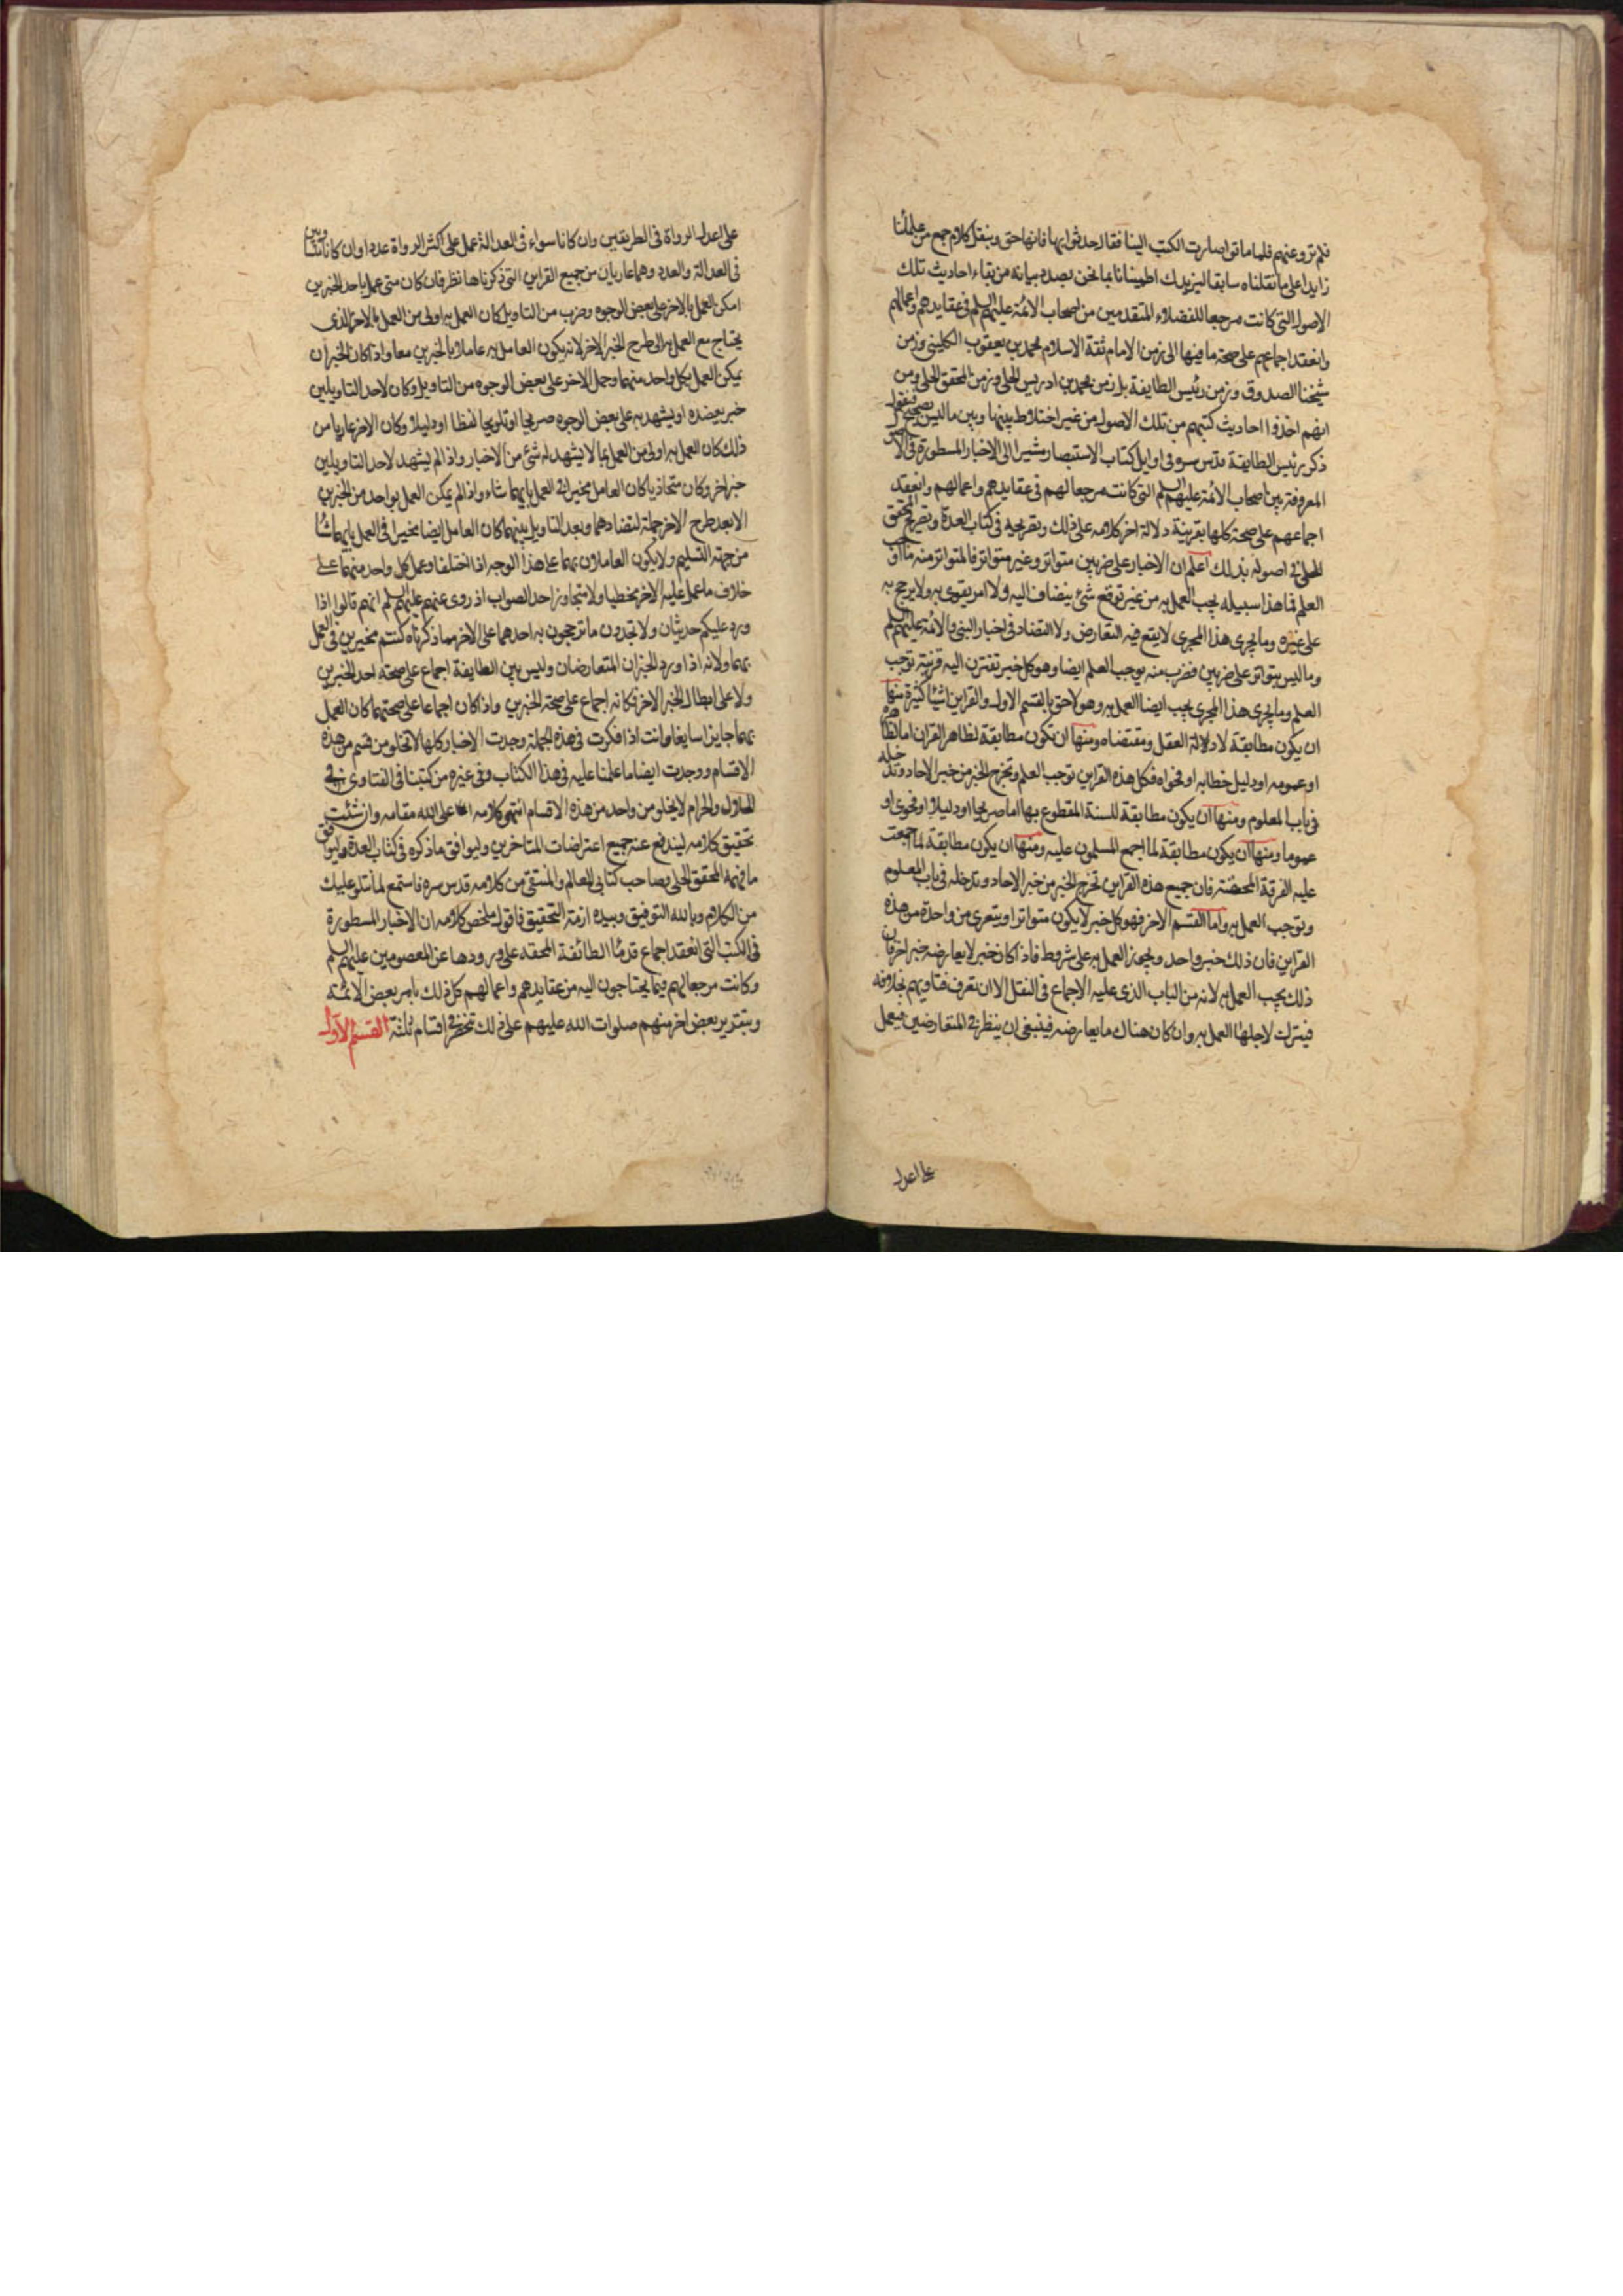 فلم ترو عنهم فلما ماتوا صارت الكتب الينا فقال حدثوا بها فانها حق وبنقل كلام جمع من علمائنا
زايدا على ما نقلناه سابقا ليزيدك اطمينانا بما نحن بصدد بيانه من بقاء احاديث تلك
الاصول التي كانت مرجعا للفضلاء المتقدمين من اصحاب الائمة عليهم السلم في عقايدهم واعمالهم
وانعقد اجماعهم على صحة ما فيها الى زمن الامام ثقة الاسلام محمد بن يعقوب الكليني وزمن
شيخنا الصدوق وزمن رئيس الطايفة بل زمن محمد بن ادريس الحلي وزمن المحقق الحلي ومن
انهم اخذوا احاديث كتبهم من تلك الاصول من غير اختلاط بينها وبين ما ليس بصحيح فنقول
ذكر رئيس الطايفة قدس سره في اوايل كتاب الاستبصار مشيرا الى الاخبار المسطورة في الاصول
المعروفة بين اصحاب الائمة عليهم السلم التي كانت مرجعا لهم في عقايدهم واعمالهم وانعقد
اجماعهم على صحة كلها بقرينة دلالة اخر كلامه على ذلك وتصريحه في كتاب العدة وتصريح المحقق
الحلي في اصوله بذلك اعلم ان الاخبار على ضربين متواتر وغير متواتر فالمتواتر منه ما اوجب
العلم فما هذا سبيله يجب العمل به من غير توقع شئ ينضاف اليه ولا امر يقوى به ولا يرجح به
على غيره وما يجرى هذا المجرى لا يقع فيه التعارض ولا التضاد في اخبار النبي والائمة عليهم السلم
وما ليس بمتواتر على ضربين فضرب منه يوجب العلم ايضا وهو كل خبر تقترن اليه قرينة توجب
العلم وما يجرى هذا المجرى يجب ايضا العمل به وهو لاحق بالقسم الاول والقراين اشياء كثيرة منها
ان يكون مطابقة لادلالة العقل ومقتضاه ومنها ان تكون مطابقة لظاهر القران اما لظاهره
او عمومه او دليل خطابه او فحواه فكل هذه القراين توجب العلم وتخرج الخبر من خبر الاحاد وتدخله
في باب المعلوم ومنها ان يكون مطابقة للسنة المقطوع بها اما صريحا او دليلا او فحوى او
عموما ومنها ان يكون مطابقة لما اجمع المسلمون عليه ومنها ان يكون مطابقة لما اجمعت
عليه الفرقة المحقة فان جميع هذه القراين تخرج الخبر من خبر الاحاد وتدخله في باب المعلوم
وتوجب العمل به واما القسم الاخر فهو كل خبر لا يكون متواترا ويتعرى من واحدة من هذه
القراين فان ذلك خبر واحد ويجوز العمل به على شروط فاذا كان خبر لا يعارضه خبر اخر فان
ذلك يجب العمل به لانه من الباب الذى عليه الاجماع في النقل الا ان تعرف فتاويهم بخلافه
فيترك لاجلها العمل به وان كان هناك ما يعارضه فينبغي ان ينظر في المتعارضين فيعمل
على اعدل
على اعدل الرواة في الطريقين وان كانا سواء في العدالة عمل على اكثر الرواة عددا وان كانا متساويين
في العدالة والعدد وهما عاريان من جميع القراين التي ذكرناها نظر فان كان متى عمل باحد الخبرين
امكن العمل بالاخر على بعض الوجوه وضرب من التاويل كان العمل به اولى من العمل بالاخر الذى
يحتاج مع العمل به الى طرح الخبر الاخر لانه يكون العامل به عاملا بالخبرين معا واذا كان الخبران
يمكن العمل بكل واحد منهما وحمل الاخر على بعض الوجوه من التاويل وكان لاحد التاويلين
خبر يعضده او يشهد به على بعض الوجوه صريحا او تلويحا لفظا او دليلا وكان الاخر عاريا من
ذلك كان العمل به اولى من العمل بما لا يشهد له شئ من الاخبار واذا لم يشهد لاحد التاويلين
خبر اخر وكان متحاذيا كان العامل مخيرا في العمل بايهما شاء واذا لم يمكن العمل بواحد من الخبرين
الا بعد طرح الاخر جملة لتضادهما وبعد التاويل بينهما كان العامل ايضا مخيرا في العمل بايهما شاء
من جهة التسليم ولا يكون العاملان بهما على هذا الوجه اذا اختلفا وعمل كل واحد منهما على
خلاف ما عمل عليه الاخر مخطيا ولا متجاوزا حد الصواب اذ روى عنهم عليهم السلم انهم قالوا اذا
ورد عليكم حديثان ولا تجدون ما ترجحون به احدهما على الاخر مما ذكرناه كنتم مخيرين في العمل
بهما ولانه اذا ورد الخبران المتعارضان وليس بين الطايفة اجماع على صحة احد الخبرين
ولا على ابطال الخبر الاخر فكانه اجماع على صحة الخبرين واذا كان اجماعا على صحتهما كان العمل
بهما جايزا سايغا وانت اذا فكرت في هذه الجملة وجدت الاخبار كلها لا تخلو من قسم من هذه
الاقسام ووجدت ايضا ما عملنا عليه في هذا الكتاب وفي غيره من كتبنا في الفتاوى في
الحلال والحرام لا يخلو من واحد من هذه الاقسام انتهى كلامه اعلى الله مقامه وان شئت
تحقيق كلامه ليندفع عنه جميع اعتراضات المتاخرين وليوافق ما ذكره في كتاب العدة وليوافق
ما فهمه المحقق الحلي وصاحب كتابي المعالم والمنتقى من كلامه قدس سره فاستمع لما نتلو عليك
من الكلام وبالله التوفيق وبيده ازمة التحقيق فاقول ملخص كلامه ان الاخبار المسطورة
في الكتب التي انعقد اجماع قدماء الطائفة المحقة على ورودها عن المعصومين عليهم السلم
وكانت مرجعا لهم فيما يحتاجون اليه من عقايدهم واعمالهم كل ذلك بامر بعض الائمة
وبتقرير بعض اخر منهم صلوات الله عليهم على ذلك تنحصر في اقسام ثلثة القسم الاول